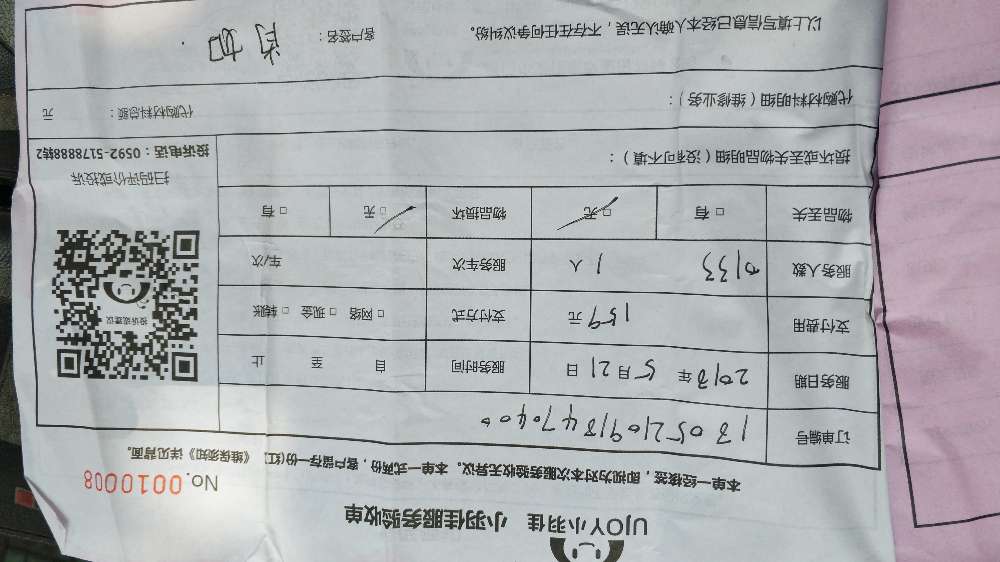 UJOY小羽佳 小羽佳服务验收单
No. 0010008
本单一经核签，即视为对本次服务验收无异议。本单一式两份，客户留存一份(红)《维保须知》详见背面。
订单编号 18052109184704000
服务日期 2018 年 5 月 21 日 服务时间 自 至 止
支付费用 159 元 支付方式 □ 网络 □ 现金 □ 转账
服务人数 0133 1 人 服务车次 车/次
物品丢失 □ 有 □ 无 物品损坏 □ 无 □ 有
投诉或建议
扫码评价或投诉
投诉电话：0592-5178888转2
损坏或丢失物品明细（没有可不填）：
代购材料明细（维修业务）： 代购材料总额： 元
以上填写信息已经本人确认无误，不存在任何争议纠纷。 客户签名：